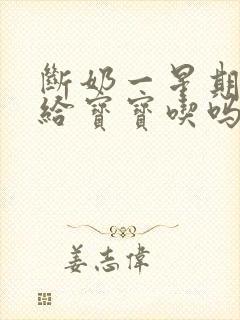 斷奶一星期
給寶寶喫嗎
姜志偉